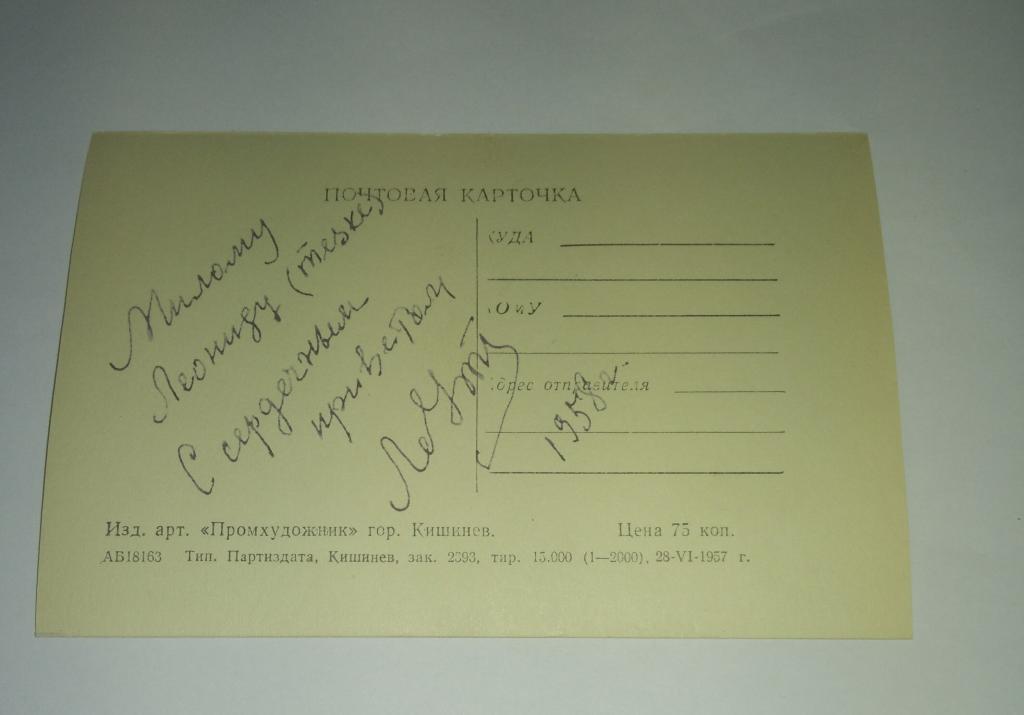 ПОЧТОВАЯ КАРТОЧКА
Милому
Леониду (тезке)
С сердечным
приветом
КУДА
КОМУ
Адрес отправителя
1958 г.
Изд. арт. «Промхудожник» гор. Кишинев. Цена 75 коп.
АБ18163 Тип. Партиздата, Кишинев, зак. 2393, тир. 15.000 (1—2000), 28-VI-1957 г.